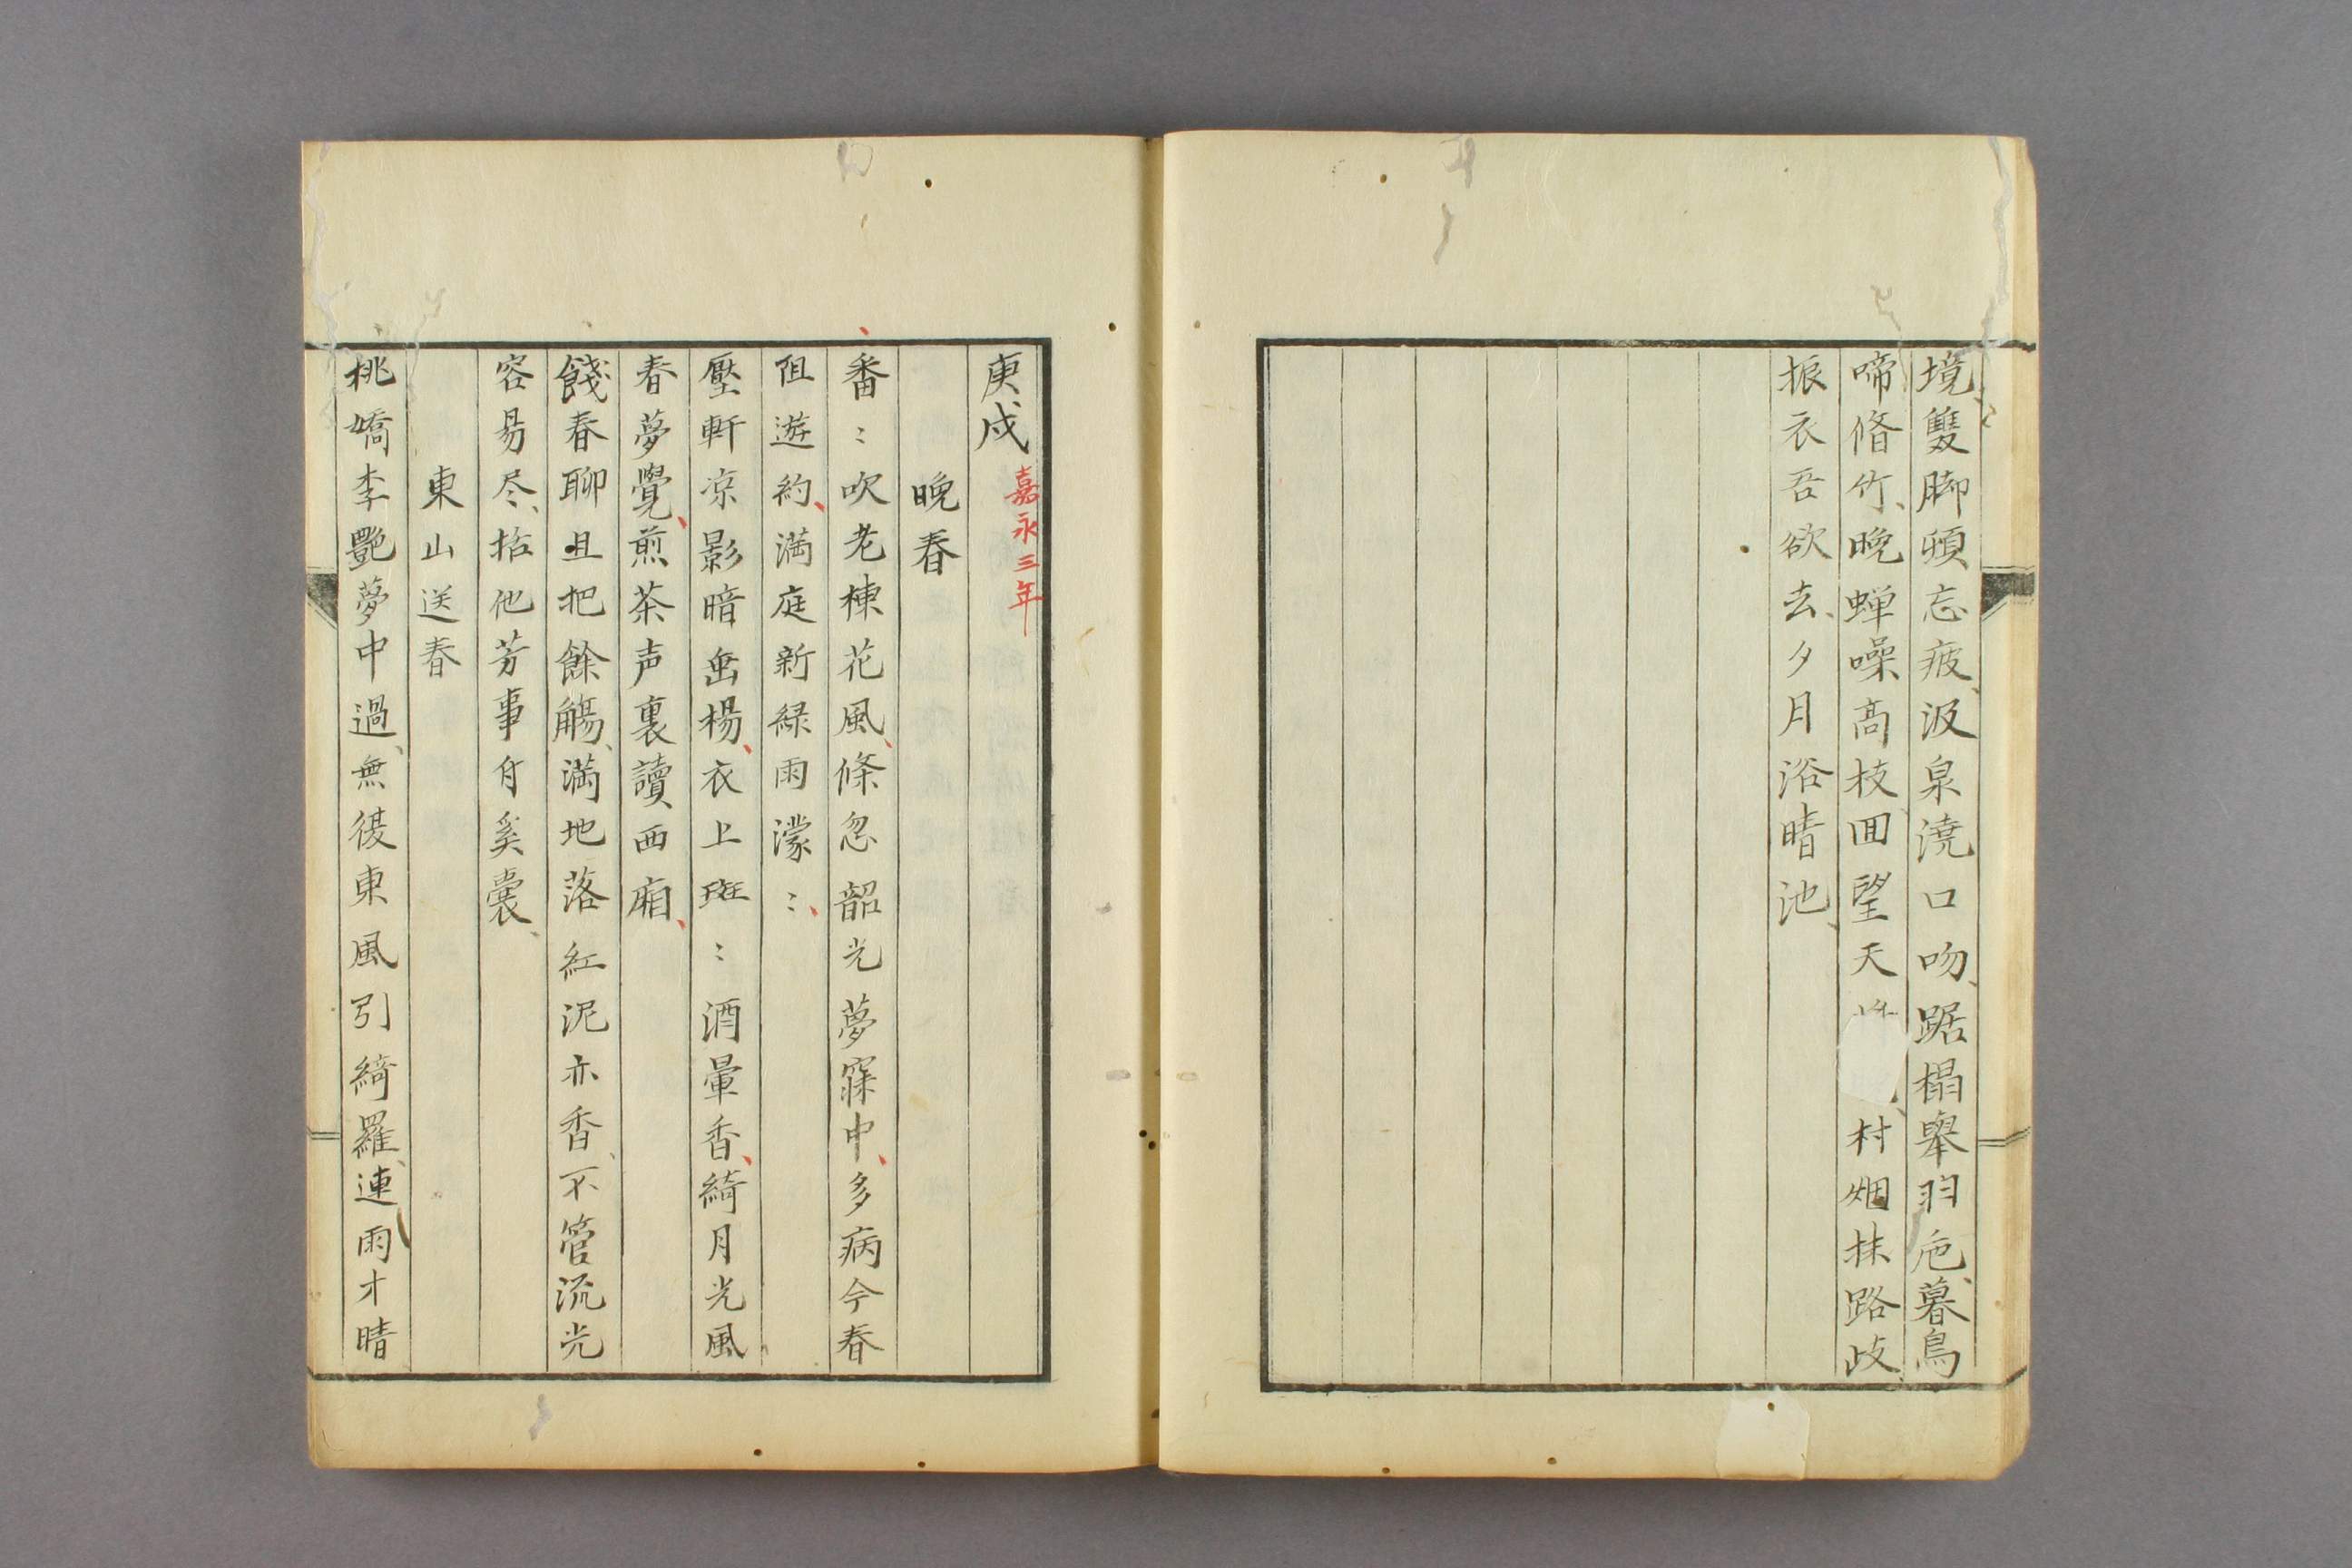 境雙脚頓忘疲汲泉澆口吻踞榻舉羽巵暮鳥
啼脩竹晚蝉噪高枝囬望天 村烟抹路歧
振衣吾欲去夕月浴晴池
庚戌 嘉永三年
晩春
番〻吹老楝花風條忽韶光夢寐中多病今春
阻遊約満庭新緑雨濛〻
壓軒凉影暗垂楊衣上斑〻酒暈香綺月光風
春夢覺煎茶声裏讀西廂
餞春聊且把餘觴満地落紅泥亦香不管流光
容易尽拈他芳事付奚囊
東山送春
桃嬌李艶夢中過無復東風引綺羅連雨才晴